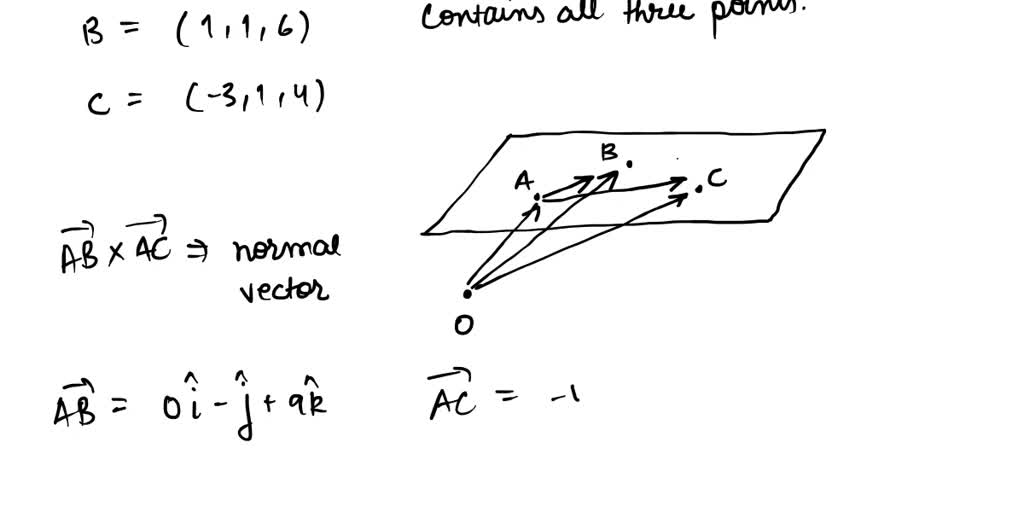 B = (1,1,6)
contains all three points.
C = (-3,1,4)
A
B
C
O
AB × AC ⇒ normal
vector
AB = 0î - ĵ + 9k̂
AC = -1